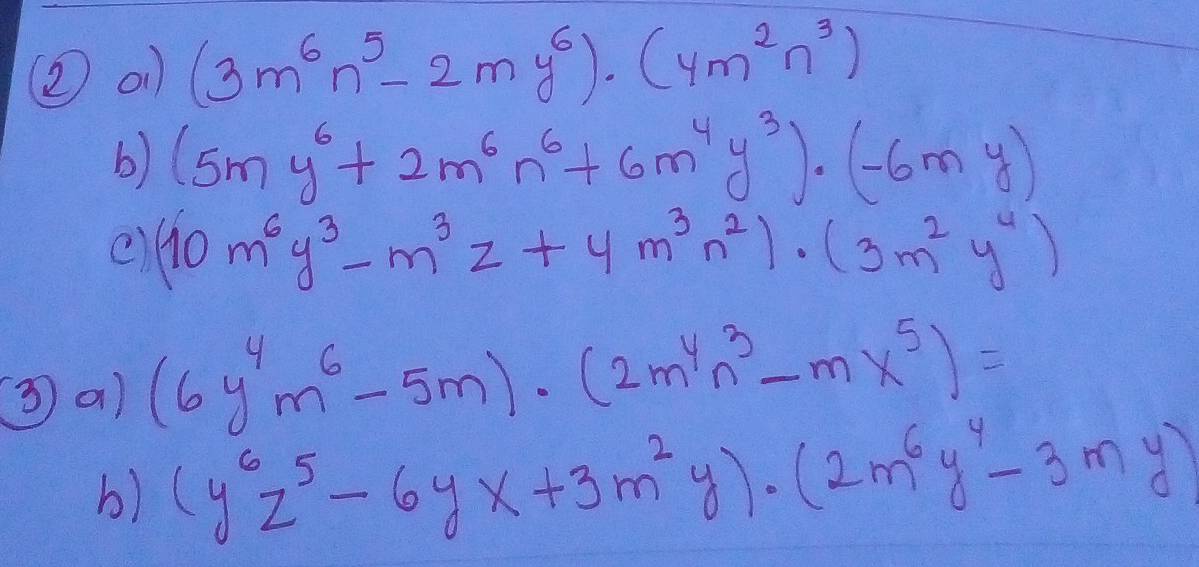 ② a) (3m⁶n⁵ - 2my⁶).(4m²n³)
b) (5my⁶ + 2m⁶n⁶ + 6m⁴y³).(-6my)
c) (10m⁶y³ - m³z + 4m³n²).(3m²y⁴)
③ a) (6y⁴m⁶ - 5m).(2m⁴n³ - mx⁵) =
b) (y⁶z⁵ - 6yx + 3m²y).(2m⁶y⁴ - 3my)